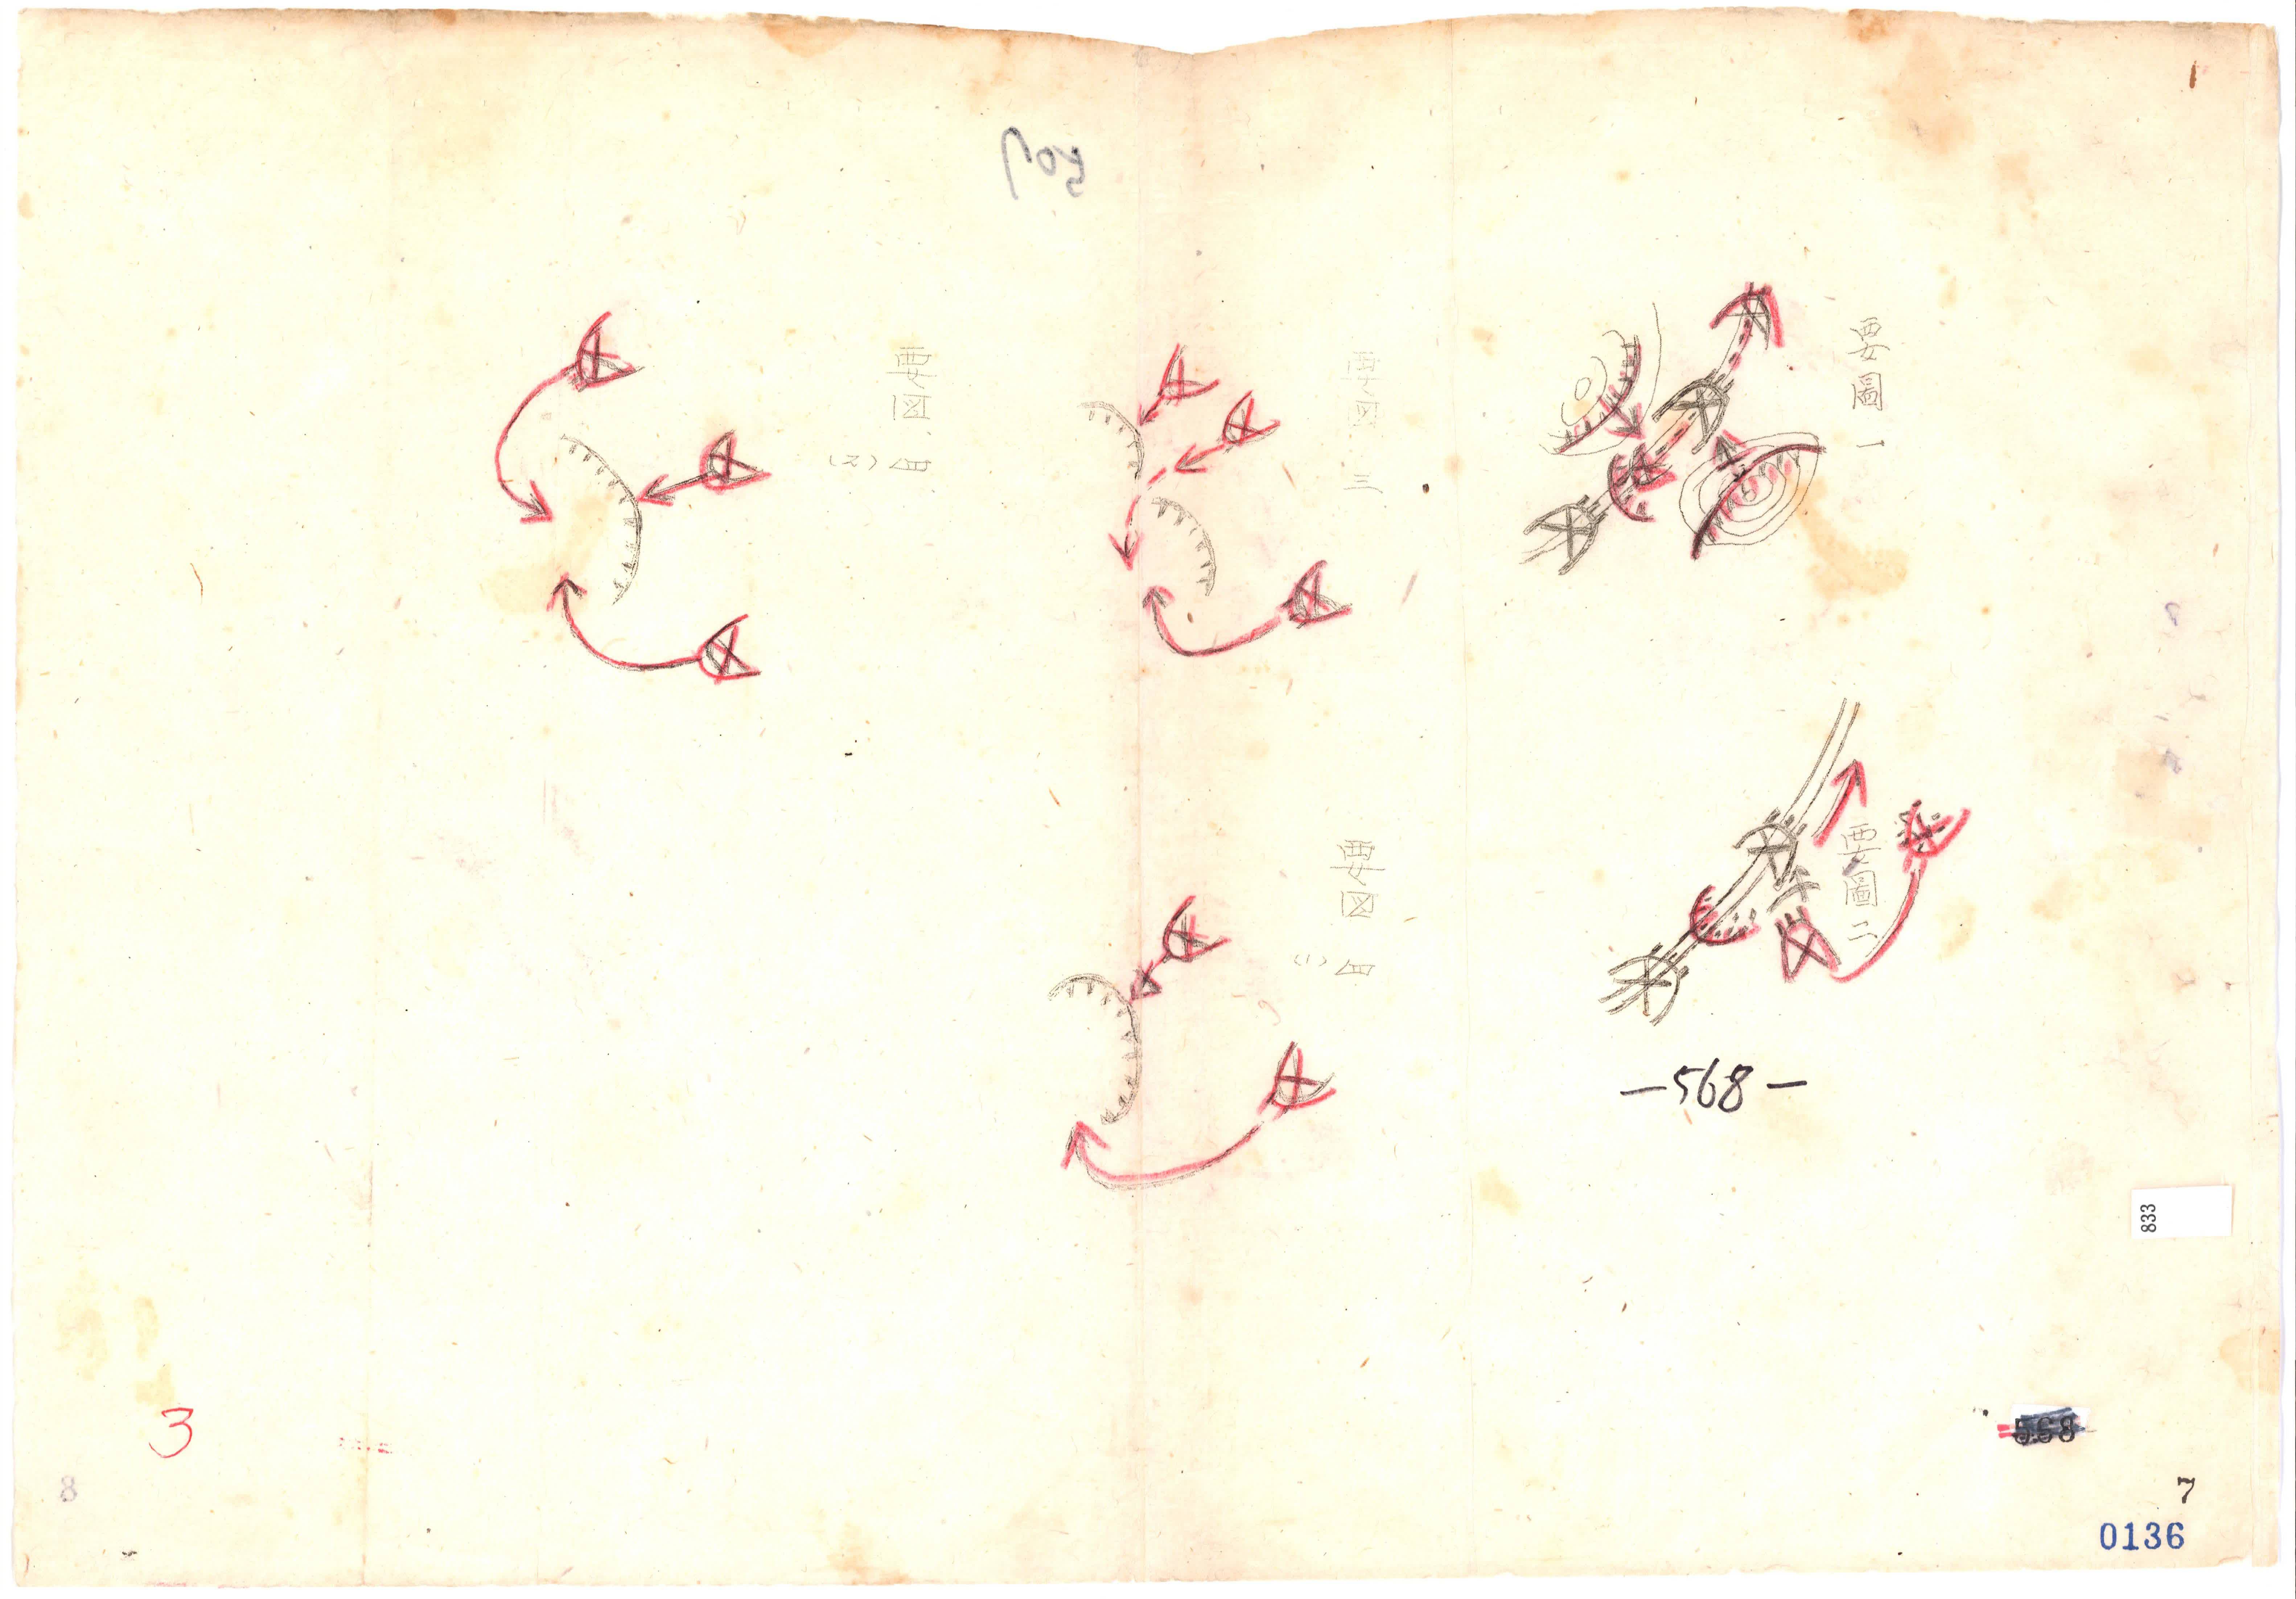 要圖一
要圖二
要図三
要図
要図
—568—
833
568
3
8
7
0136